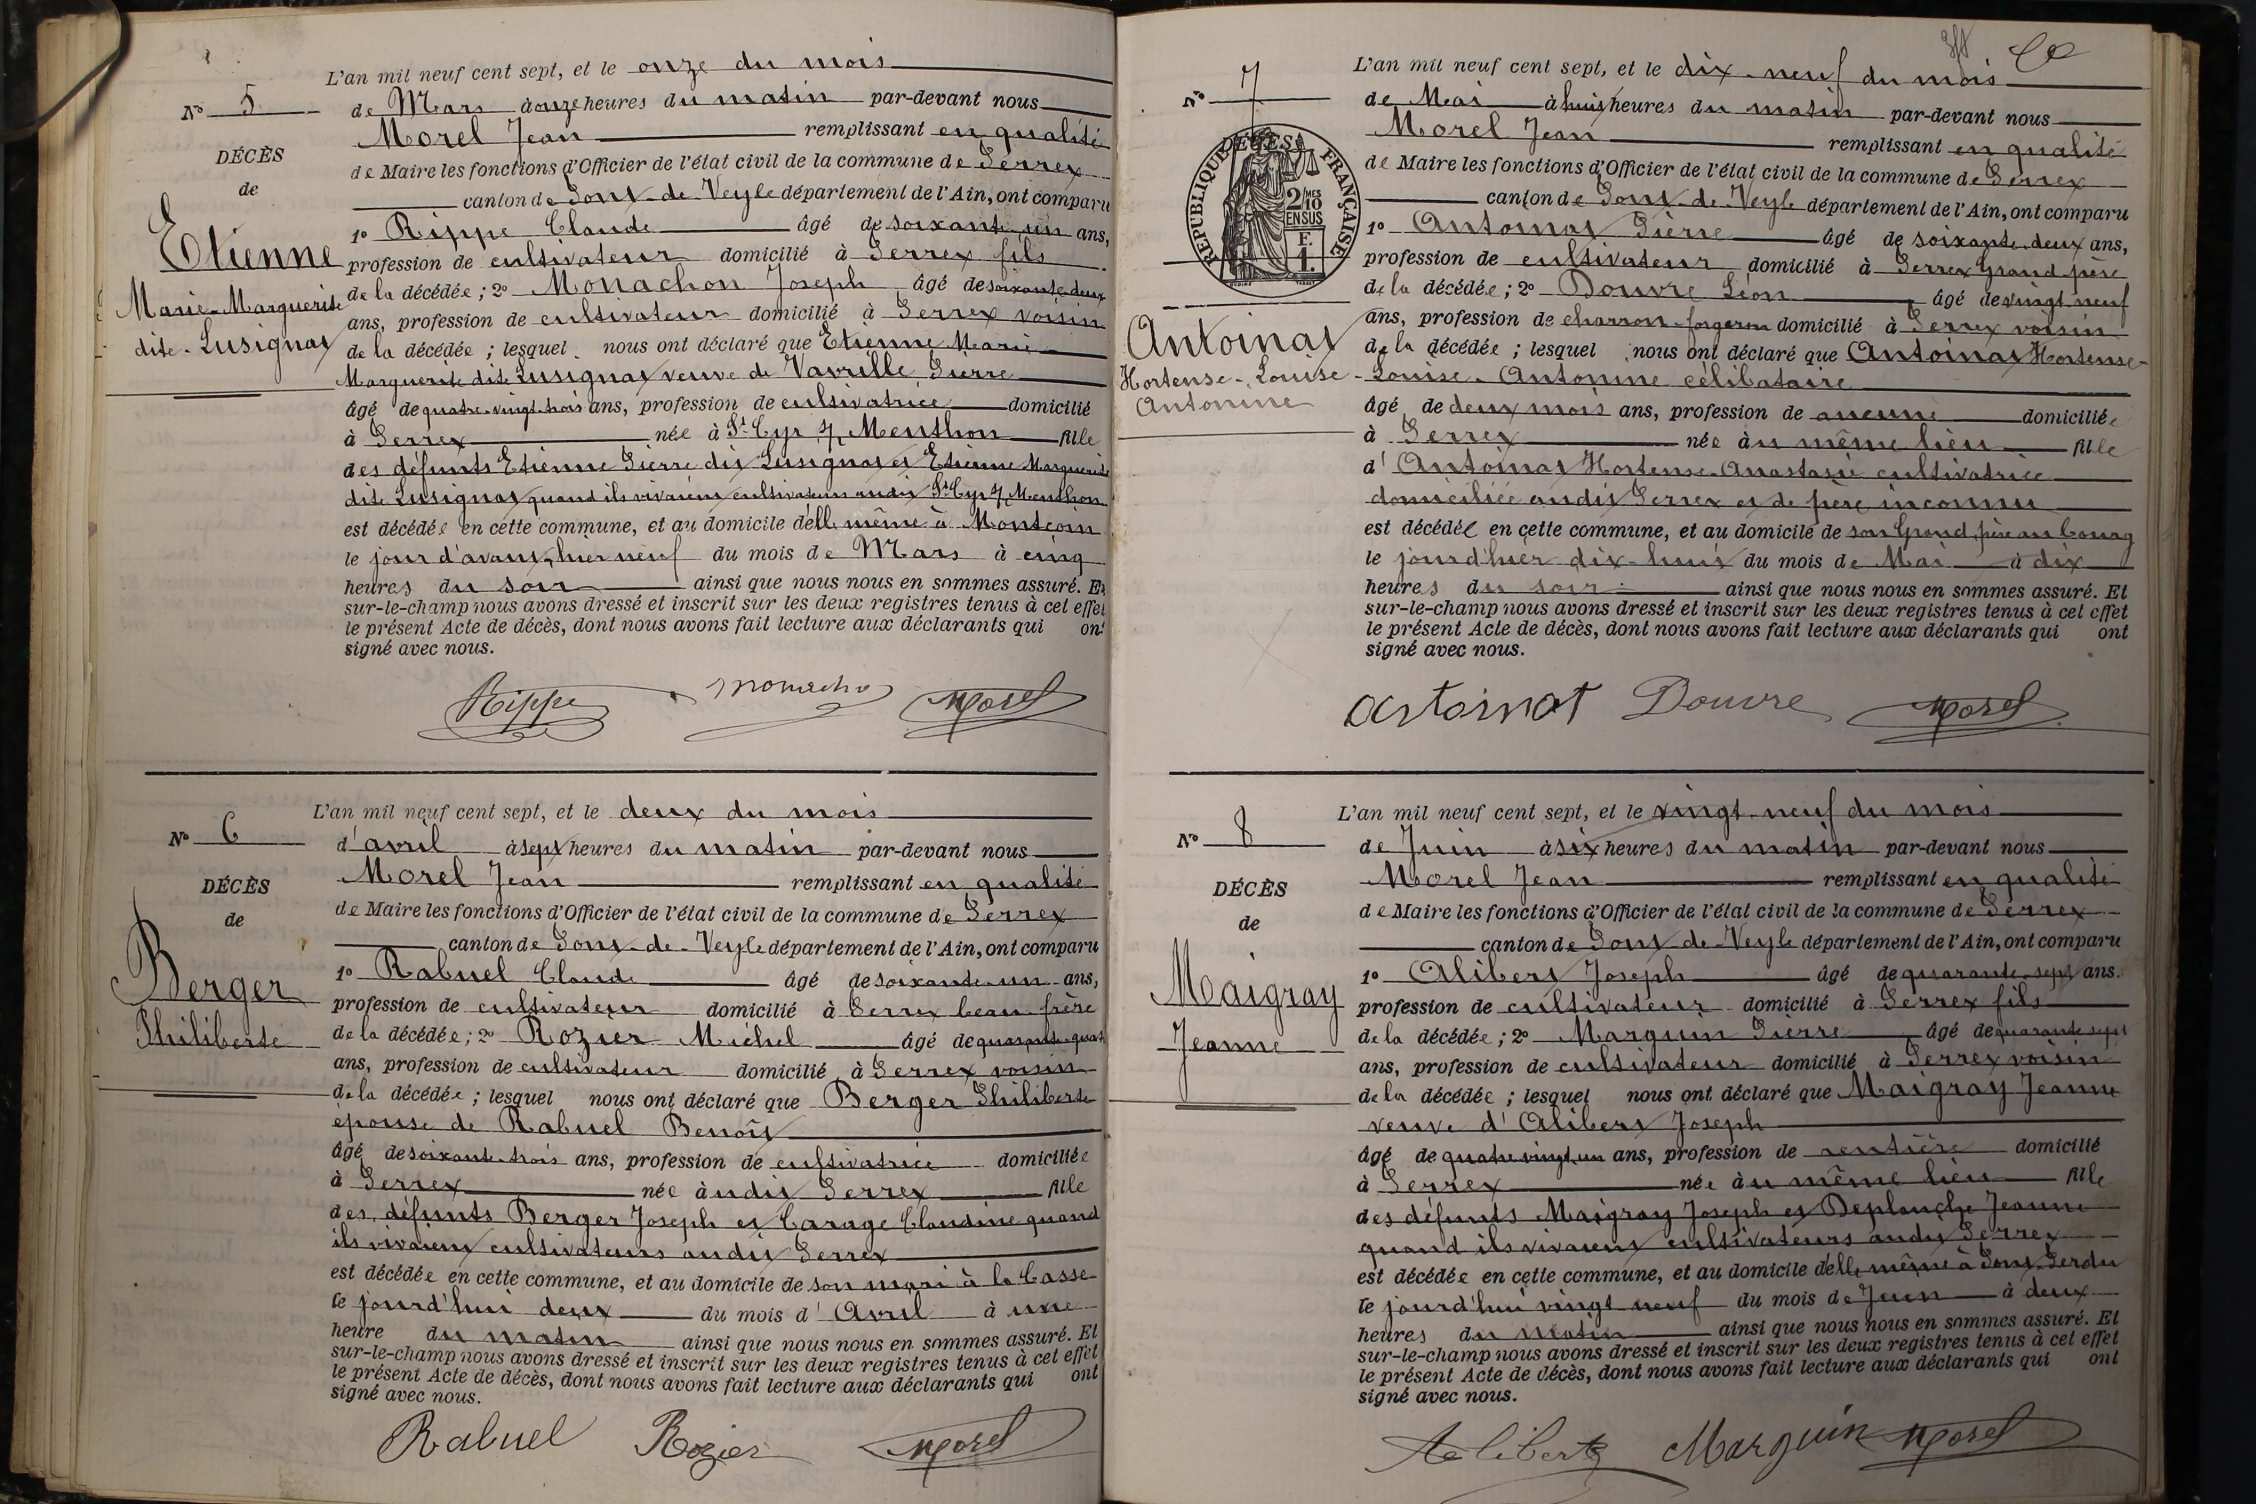 L'an mil neuf cent sept, et le onze du mois
No 5
de Mars à onze heures du matin par-devant nous
Morel Jean remplissant en qualité
DÉCÈS
de Maire les fonctions d'Officier de l'état civil de la commune de Perrex
de
canton de Pont-de-Veyle département de l'Ain, ont comparu
1o Rippe Claude âgé de soixante un ans,
Etienne
profession de cultivateur domicilié à Perrex fils
Marie-Marguerite
de la décédée; 2o Monachon Joseph âgé de soixante-deux
ans, profession de cultivateur domicilié à Perrex voisin
dite-Lusignat
de la décédée; lesquel nous ont déclaré que Etienne Marie
Marguerite dite Lusignat veuve de Vavrille Pierre
âgé de quatre-vingt-trois ans, profession de cultivatrice domicilié
à Perrex née à St Cyr s/ Menthon fille
des défunts Etienne Pierre dit Lusignat et Etienne Marguerite
dite Lusignat quand ils vivaient cultivateurs audit St Cyr s/ Menthon
est décédée en cette commune, et au domicile d'elle même à Montcoin
le jour d'avant-hier neuf du mois de Mars à cinq
heures du soir ainsi que nous nous en sommes assuré. Et
sur-le-champ nous avons dressé et inscrit sur les deux registres tenus à cet effet
le présent Acte de décès, dont nous avons fait lecture aux déclarants qui ont
signé avec nous.
Rippe Monacho Morel
L'an mil neuf cent sept, et le deux du mois
No 6
d'avril à sept heures du matin par-devant nous
Morel Jean remplissant en qualité
DÉCÈS
de Maire les fonctions d'Officier de l'état civil de la commune de Perrex
de
canton de Pont-de-Veyle département de l'Ain, ont comparu
1o Rabuel Claude âgé de soixante-un ans,
Berger
profession de cultivateur domicilié à Perrex beau-frère
Philiberte
de la décédée; 2o Rozier Michel âgé de quarante-quatre
ans, profession de cultivateur domicilié à Perrex voisin
de la décédée; lesquel nous ont déclaré que Berger Philiberte
épouse de Rabuel Benoît
âgé de soixante-trois ans, profession de cultivatrice domiciliée
à Perrex née à udit Perrex fille
des défunts Berger Joseph et Carage Claudine quand
ils vivaient cultivateurs audit Perrex
est décédée en cette commune, et au domicile de son mari à la Casse
le jourd'hui deux du mois d'Avril à une
heure du matin ainsi que nous nous en sommes assuré. Et
sur-le-champ nous avons dressé et inscrit sur les deux registres tenus à cet effet
le présent Acte de décès, dont nous avons fait lecture aux déclarants qui ont
signé avec nous.
Rabuel Rozier Morel
L'an mil neuf cent sept, et le dix-neuf du mois
No 7
de Mai à huit heures du matin par-devant nous
Morel Jean remplissant en qualité
DÉCÈS
REPUBLIQUE FRANÇAISE
2/10 MES
EN SUS
F.
1.
de Maire les fonctions d'Officier de l'état civil de la commune de Perrex
canton de Pont-de-Veyle département de l'Ain, ont comparu
1o Antoinat Pierre âgé de soixante-deux ans,
profession de cultivateur domicilié à Perrex Grand-père
de la décédée; 2o Douvre Léon âgé de vingt-neuf
ans, profession de charron-forgeron domicilié à Perrex voisin
Antoinat
de la décédée; lesquel nous ont déclaré que Antoinat Hortense-
Hortense-Louise-
Louise-Antonine célibataire
Antonine
âgé de deux mois ans, profession de aucune domiciliée
à Perrex née à u même lieu fille
d'Antoinat Hortense-Anastasie cultivatrice
domiciliée audit Perrex et de père inconnu
est décédée en cette commune, et au domicile de son Grand-père au bourg
le jourd'hier dix-huit du mois de Mai à dix
heures du soir ainsi que nous nous en sommes assuré. Et
sur-le-champ nous avons dressé et inscrit sur les deux registres tenus à cet effet
le présent Acte de décès, dont nous avons fait lecture aux déclarants qui ont
signé avec nous.
Antoinat Douvre Morel
L'an mil neuf cent sept, et le vingt-neuf du mois
No 8
de Juin à six heures du matin par-devant nous
Morel Jean remplissant en qualité
DÉCÈS
de Maire les fonctions d'Officier de l'état civil de la commune de Perrex
de
canton de Pont-de-Veyle département de l'Ain, ont comparu
1o Alibert Joseph âgé de quarante-sept ans.
Maigray
profession de cultivateur domicilié à Perrex fils
Jeanne
de la décédée; 2o Marguin Pierre âgé de quarante sept
ans, profession de cultivateur domicilié à Perrex voisin
de la décédée; lesquel nous ont déclaré que Maigray Jeanne
veuve d'Alibert Joseph
âgé de quatre vingt-un ans, profession de rentière domicilié
à Perrex née à u même lieu fille
des défunts Maigray Joseph et Deplanche Jeanne
quand ils vivaient cultivateurs audit Perrex
est décédée en cette commune, et au domicile d'elle même à Pont-Perdu
le jourd'hui vingt neuf du mois de Juin à deux
heures du matin ainsi que nous nous en sommes assuré. Et
sur-le-champ nous avons dressé et inscrit sur les deux registres tenus à cet effet
le présent Acte de décès, dont nous avons fait lecture aux déclarants qui ont
signé avec nous.
Alibert Marguin Morel